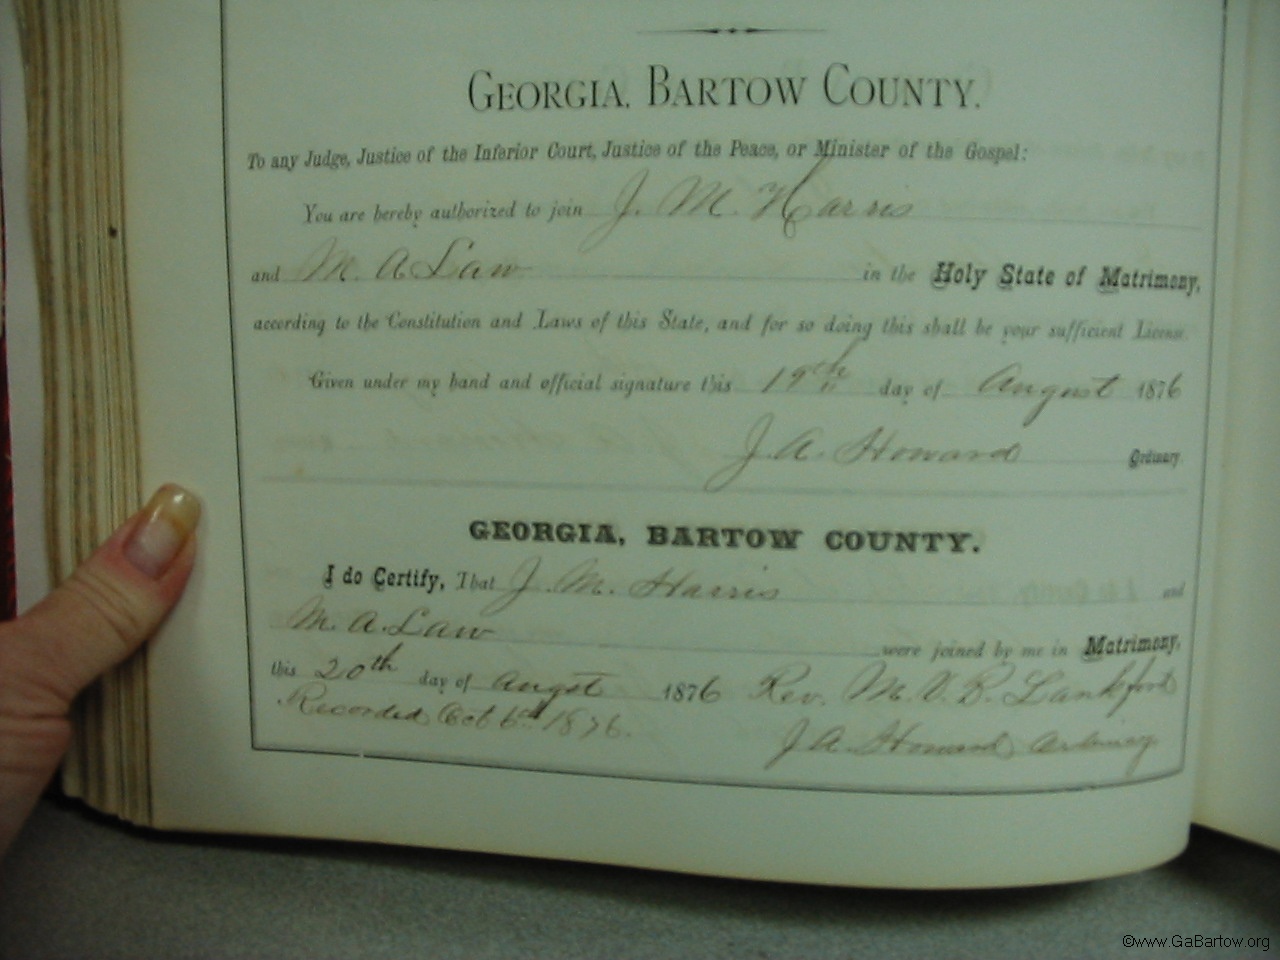 GEORGIA, BARTOW COUNTY.
To any Judge, Justice of the Inferior Court, Justice of the Peace, or Minister of the Gospel:
You are hereby authorized to join J. M. Harris
and M. A. Law in the Holy State of Matrimony,
according to the Constitution and Laws of this State, and for so doing this shall be your sufficient License.
Given under my hand and official signature this 19th day of August 1876
J. A. Howard Ordinary.
GEORGIA, BARTOW COUNTY.
I do Certify, That J. M. Harris and
M. A. Law were joined by me in Matrimony,
this 20th day of Augst 1876 Rev. M. V. B. Lankford
Recorded Oct 6th 1876.
J. A. Howard
©www.GaBartow.org